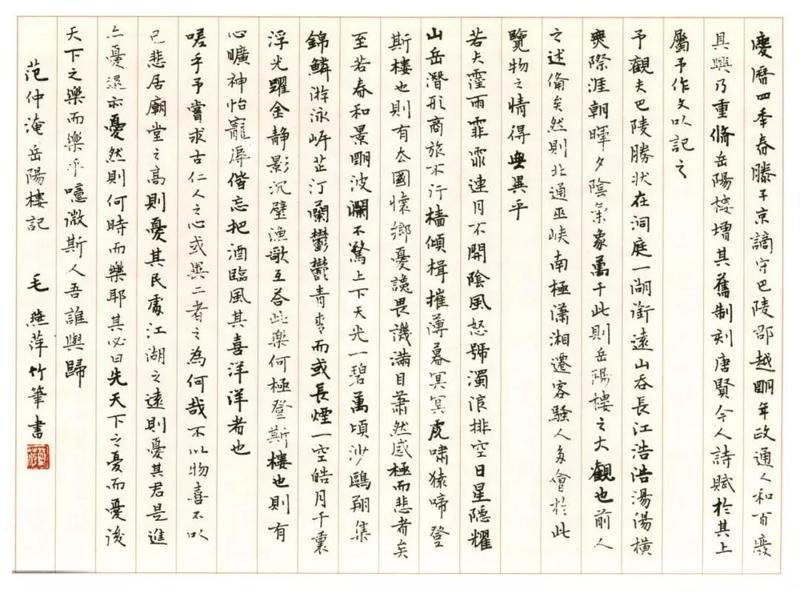 慶曆四年春滕子京謫守巴陵郡越明年政通人和百廢
具興乃重脩岳陽樓增其舊制刻唐賢今人詩賦於其上
屬予作文以記之
予觀夫巴陵勝狀在洞庭一湖銜遠山吞長江浩浩湯湯橫
無際涯朝暉夕陰氣象萬千此則岳陽樓之大觀也前人
之述備矣然則北通巫峽南極瀟湘遷客騷人多會於此
覽物之情得無異乎
若夫霪雨霏霏連月不開陰風怒號濁浪排空日星隱耀
山岳潛形商旅不行檣傾楫摧薄暮冥冥虎嘯猿啼登
斯樓也則有去國懷鄉憂讒畏譏滿目蕭然感極而悲者矣
至若春和景明波瀾不驚上下天光一碧萬頃沙鷗翔集
錦鱗游泳岸芷汀蘭鬱鬱青青而或長煙一空皓月千裏
浮光躍金靜影沉璧漁歌互答此樂何極登斯樓也則有
心曠神怡寵辱偕忘把酒臨風其喜洋洋者也
嗟乎予嘗求古仁人之心或異二者之為何哉不以物喜不以
己悲居廟堂之高則憂其民處江湖之遠則憂其君是進
亦憂退亦憂然則何時而樂耶其必曰先天下之憂而憂後
天下之樂而樂乎噫微斯人吾誰與歸
范仲淹岳陽樓記 毛燕萍竹筆書